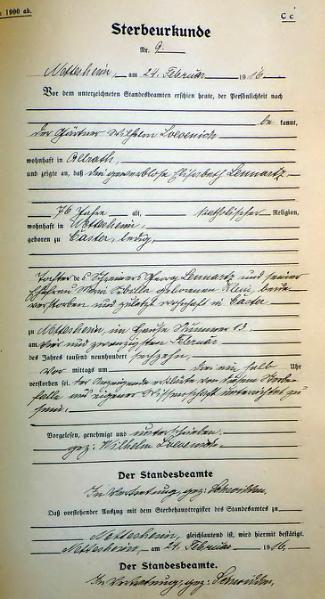 1900 ab.
C c
Sterbeurkunde
Nr. 9
Nettesheim, am 24. Februar 1916
Vor dem unterzeichneten Standesbeamten erschien heute, der Persönlichkeit nach
be kannt,
der Gärtner Wilhelm Loevenich
wohnhaft in
und zeigte an, daß die gewerblose Elisabeth Lennartz
76 Jahre alt, katholischer Religion,
wohnhaft in Nettesheim
geboren zu Caster, ledig,
Tochter des Schreiners Lennartz und seiner
Ehefrau geborenen beide
verstorben und zuletzt wohnhaft in Caster
zu Nettesheim, im Hause Nummer 13
am vier und zwanzigsten Februar
des Jahres tausend neunhundert sechzehn
vor mittags um Uhr
verstorben sei. Der Anzeigende erklärte von diesem Sterbe-
falle aus eigener Wissenschaft unterrichtet zu
sein.
Vorgelesen, genehmigt und unterschrieben
gez: Wilhelm Loevenich
Der Standesbeamte
In Vertretung, gez:
Daß vorstehender Auszug mit dem Sterbehauptregister des Standesamtes zu
Nettesheim, gleichlautend ist, wird hiermit bestätigt.
Nettesheim, am 24. Februar 1916.
Der Standesbeamte.
In Vertretung, gez: